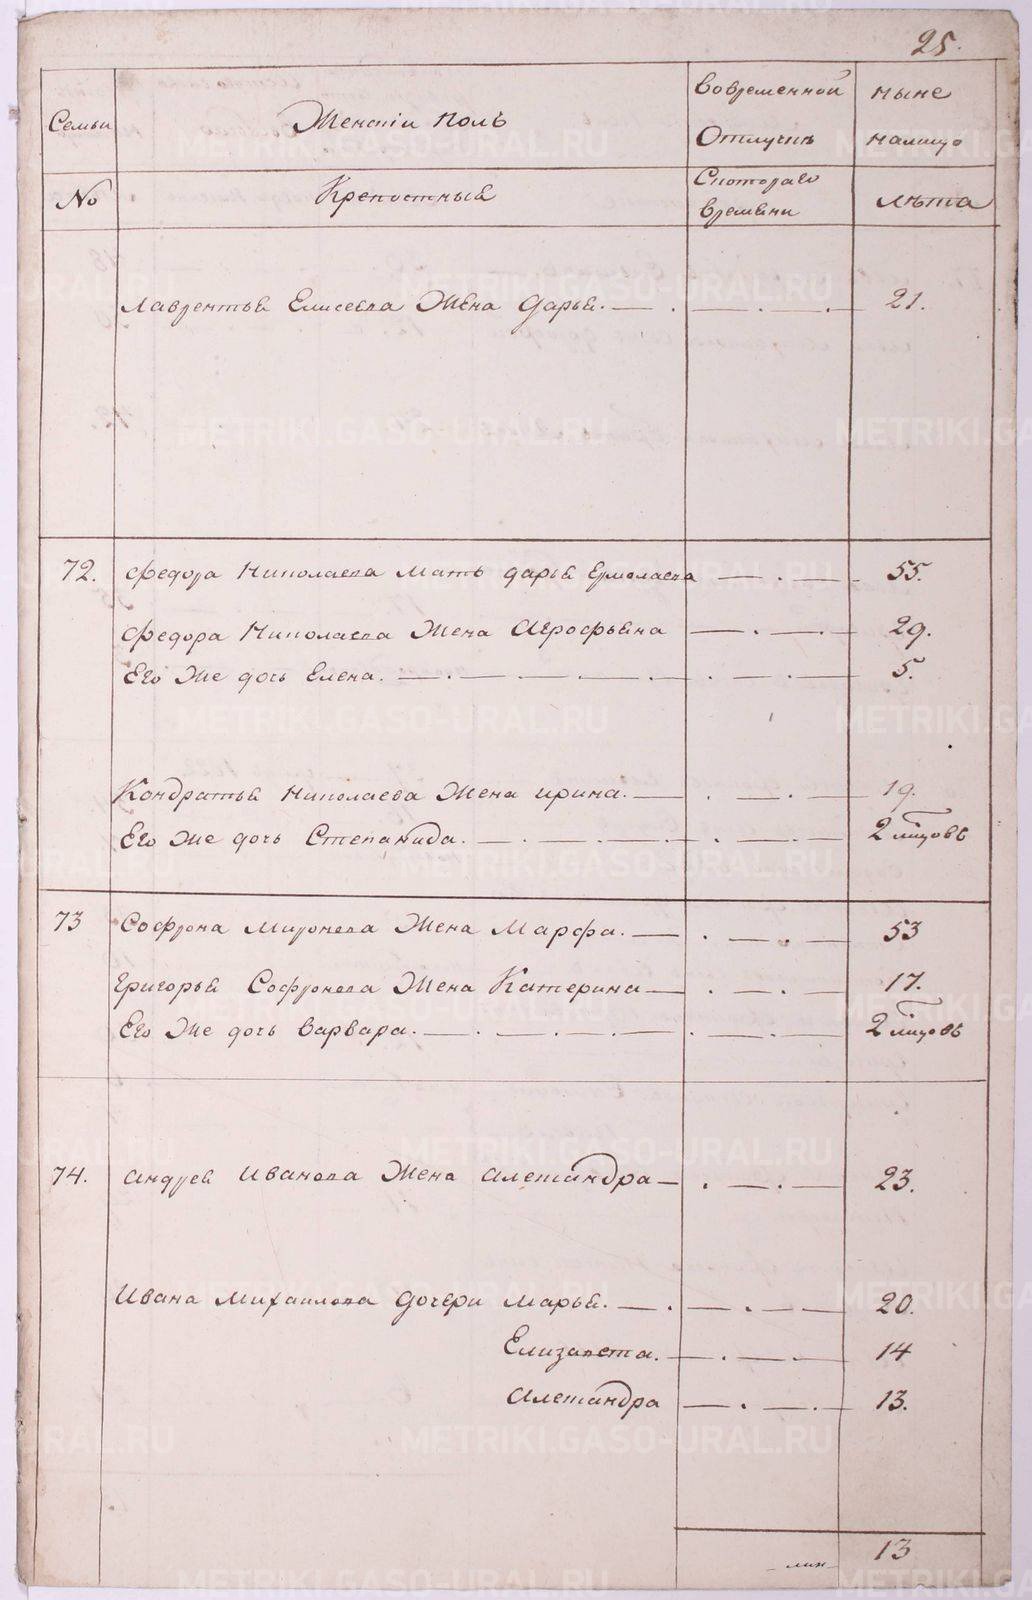 25.
Семьи Женскiй полъ Вовременной ныне
Отлучке налицо
No Крепостныя Скотораго лѣта
времяни
Лаврентья Елисеева Жена Дарья. 21.
72. Федора Николаева Мать Дарья Ермолаева 55.
Федора Николаева Жена Агрофѣина 29.
Его Же дочь Елена. 5.
Кондратья Николаева Жена Ирина. 19.
Его Же дочь Степанида. 2 мѣсцовъ
73 Софрона Миронова Жена Марфа. 53
Григорья Софронова Жена Катерина 17.
Его Же дочь Варвара. 2 мѣсцовъ
74. Андрея Иванова Жена Александра 23.
Ивана Михаилова Дочери Марья. 20.
Елизавета. 14
Александра 13.
13
METRIKI.GASO-URAL.RU